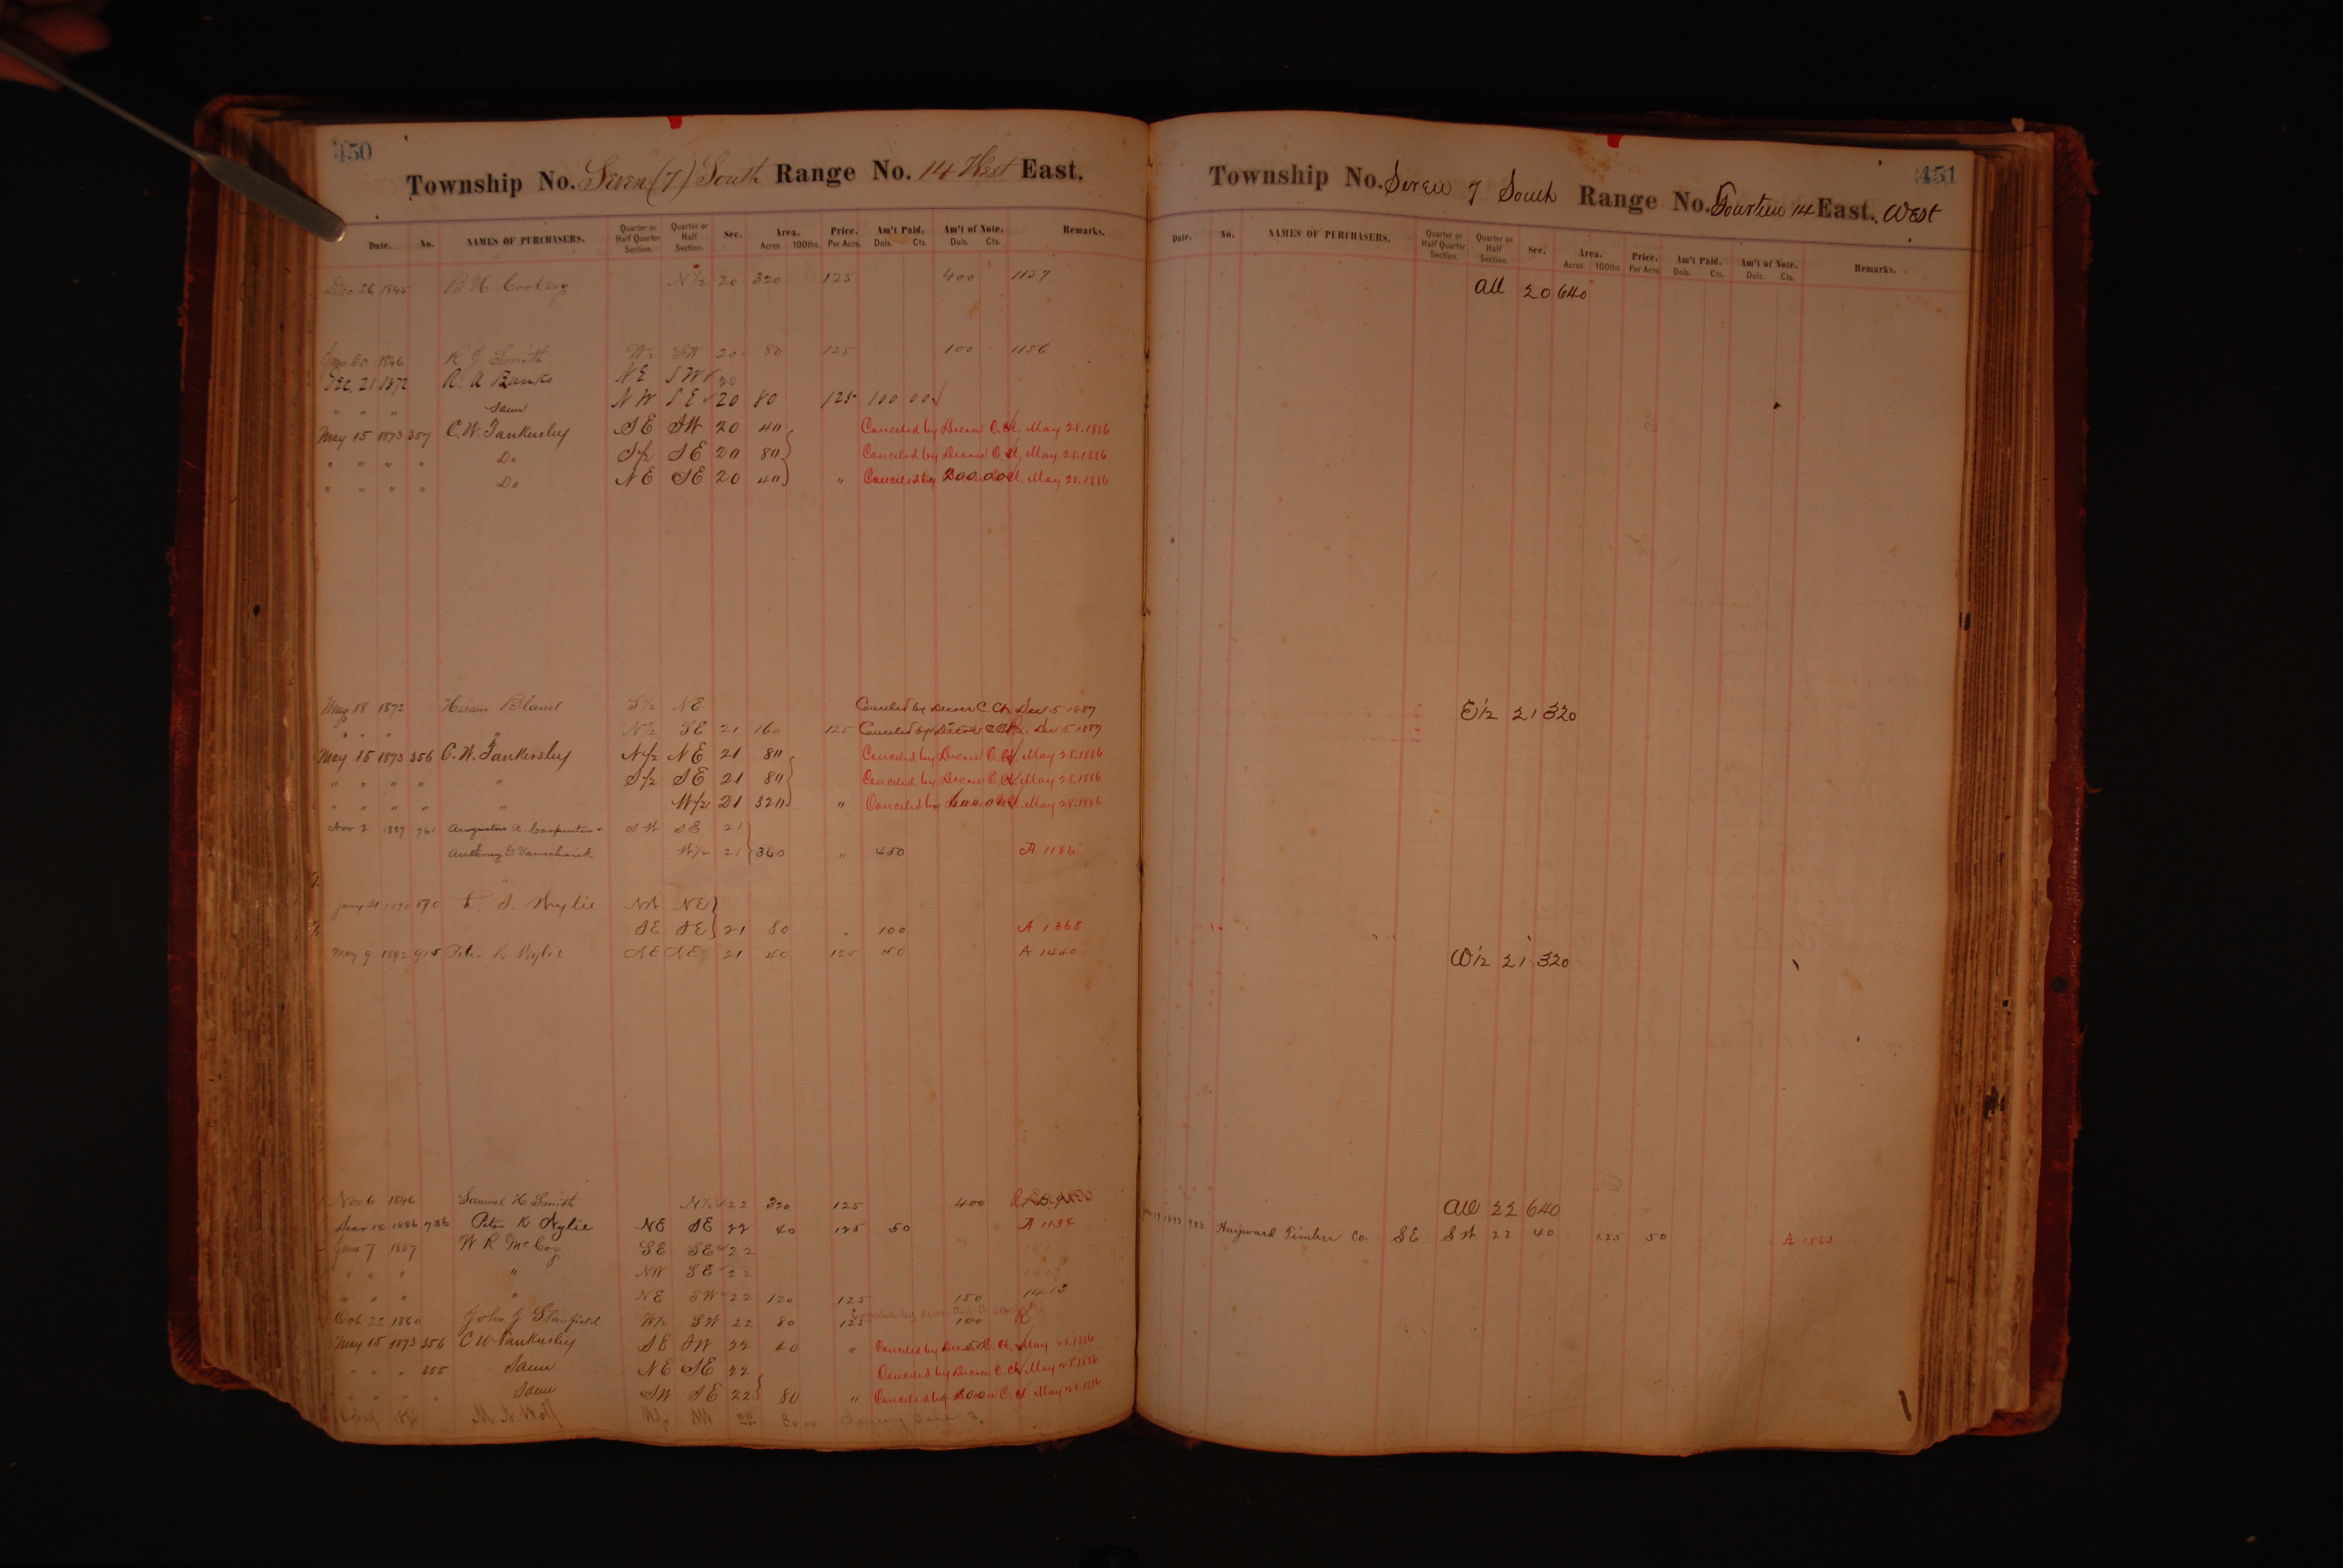 450
Township No. Seven (7) South Range No. 14 West East.
Date. No. NAMES OF PURCHASERS. Quarter or Half Quarter Section. Quarter or Half Section. Sec. Area. Acres 100ths. Price. Per Acre. Am't Paid. Dols. Cts. Am't of Note. Dols. Cts. Remarks.
Dec 26 1845 B H N½ 20 320 125 400 1157
30 1846 R J Smith W½ SW 20 80 125 100 1156
Dec. 21 1872 R. A Banks NE SW 20
" " " Same NW SE 20 80 125 100 00
May 15 1873 357 C. W. Tankersley SE SW 20 40 Canceled by Decree C. Ct. May 28. 1886
" " " " Do S/2 SE 20 80 Canceled by Decree C. Ct. May 28. 1886
" " " " Do NE SE 20 40 " Canceled by 200 00 Ct. May 28. 1886
May 18 1872 Hiram Bland S½ NE Canceled by Decree C. Ch Dec 5 1887
" " " " N½ SE 21 160 125 Canceled by Decree C Ch. Dec 5 1887
May 15 1873 356 C. W. Tankersley N/2 NE 21 80 Canceled by Decree C. Ct. May 28. 1886
" " " " " S/2 SE 21 80 Canceled by Decree C. Ct. May 28. 1886
" " " " " W/2 21 320 " Canceled by Ct. May 28. 1886
Nov 2 1887 761 Augustus A. Carpenter SW SE 21
Anthony G Vanschaick W/2 21 360 " 450 A. 1186
Jany 31 1890 890 S. Wylie NW NE
SE SE 21 80 " 100 A 1368
May 9 1892 915 Peter K Wylie NE NE 21 40 125 50 A 1440
Nov 6 1846 Samuel H Smith N½ 22 320 125 400
14 1886 736 Peter K Wylie NE SE 22 40 125 50 A 1134
June 7 1857 W R McCoy SE SE 22
" " " " NW SE 22
" " " " NE SW 22 120 125 150 1413
Oct 22 1860 John J Stanfield W½ SW 22 80 125 100
May 15 1873 356 C W Tankersley SE SW 22 40 " Canceled by Decree C. Ct. May 28. 1886
" " " 355 Same NE SE 22 Canceled by Decree C. Ct. May 28. 1886
" " " " Same SW SE 22 80 " Canceled by C. Ct. May 28. 1886
M. N. Wolf 22 80
451
Township No. Seven 7 South Range No. Fourteen 14 East. West
Date. No. NAMES OF PURCHASERS. Quarter or Half Quarter Section. Quarter or Half Section. Sec. Area. Acres 100ths. Price. Per Acre. Am't Paid. Dols. Cts. Am't of Note. Dols. Cts. Remarks.
All 20 640
E½ 21 320
W½ 21 320
All 22 640
Hayward Timber Co. SE SW 22 40 125 50 A 1563